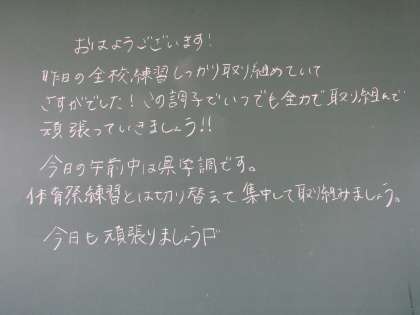 おはようございます!
昨日の全校練習しっかり取り組めていて
さすがでした!この調子でいつでも全力で取り組んで
頑張っていきましょう!!
今日の午前中は県学調です。
体育祭練習とは切り替えて集中して取り組みましょう。
今日も頑張りましょう